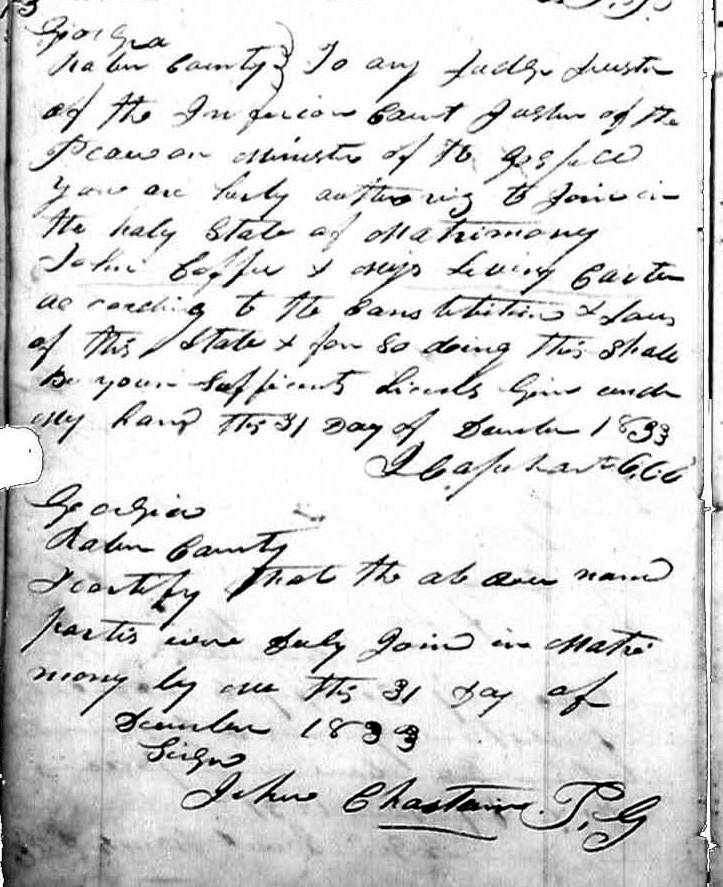 Georgia
Rabun County } To any Judge Justice
of the Inferior Court Justice of the
Peace or Minister of the Gospel
You are herby authorizg to Join in
the holy State of Matrimony
John Coffee & Miss Carter
according to the Constitution & Laws
of this State & for So doing this Shall
be your Sufficient Givn under
My hand this 31 Day of December 1833
C.C.O
Georgia
Rabun County
I certify that the above named
partis were Duly Joind in Matri
mony by me this 31 Day of
December 1833
Sign
John Chastain J.P.